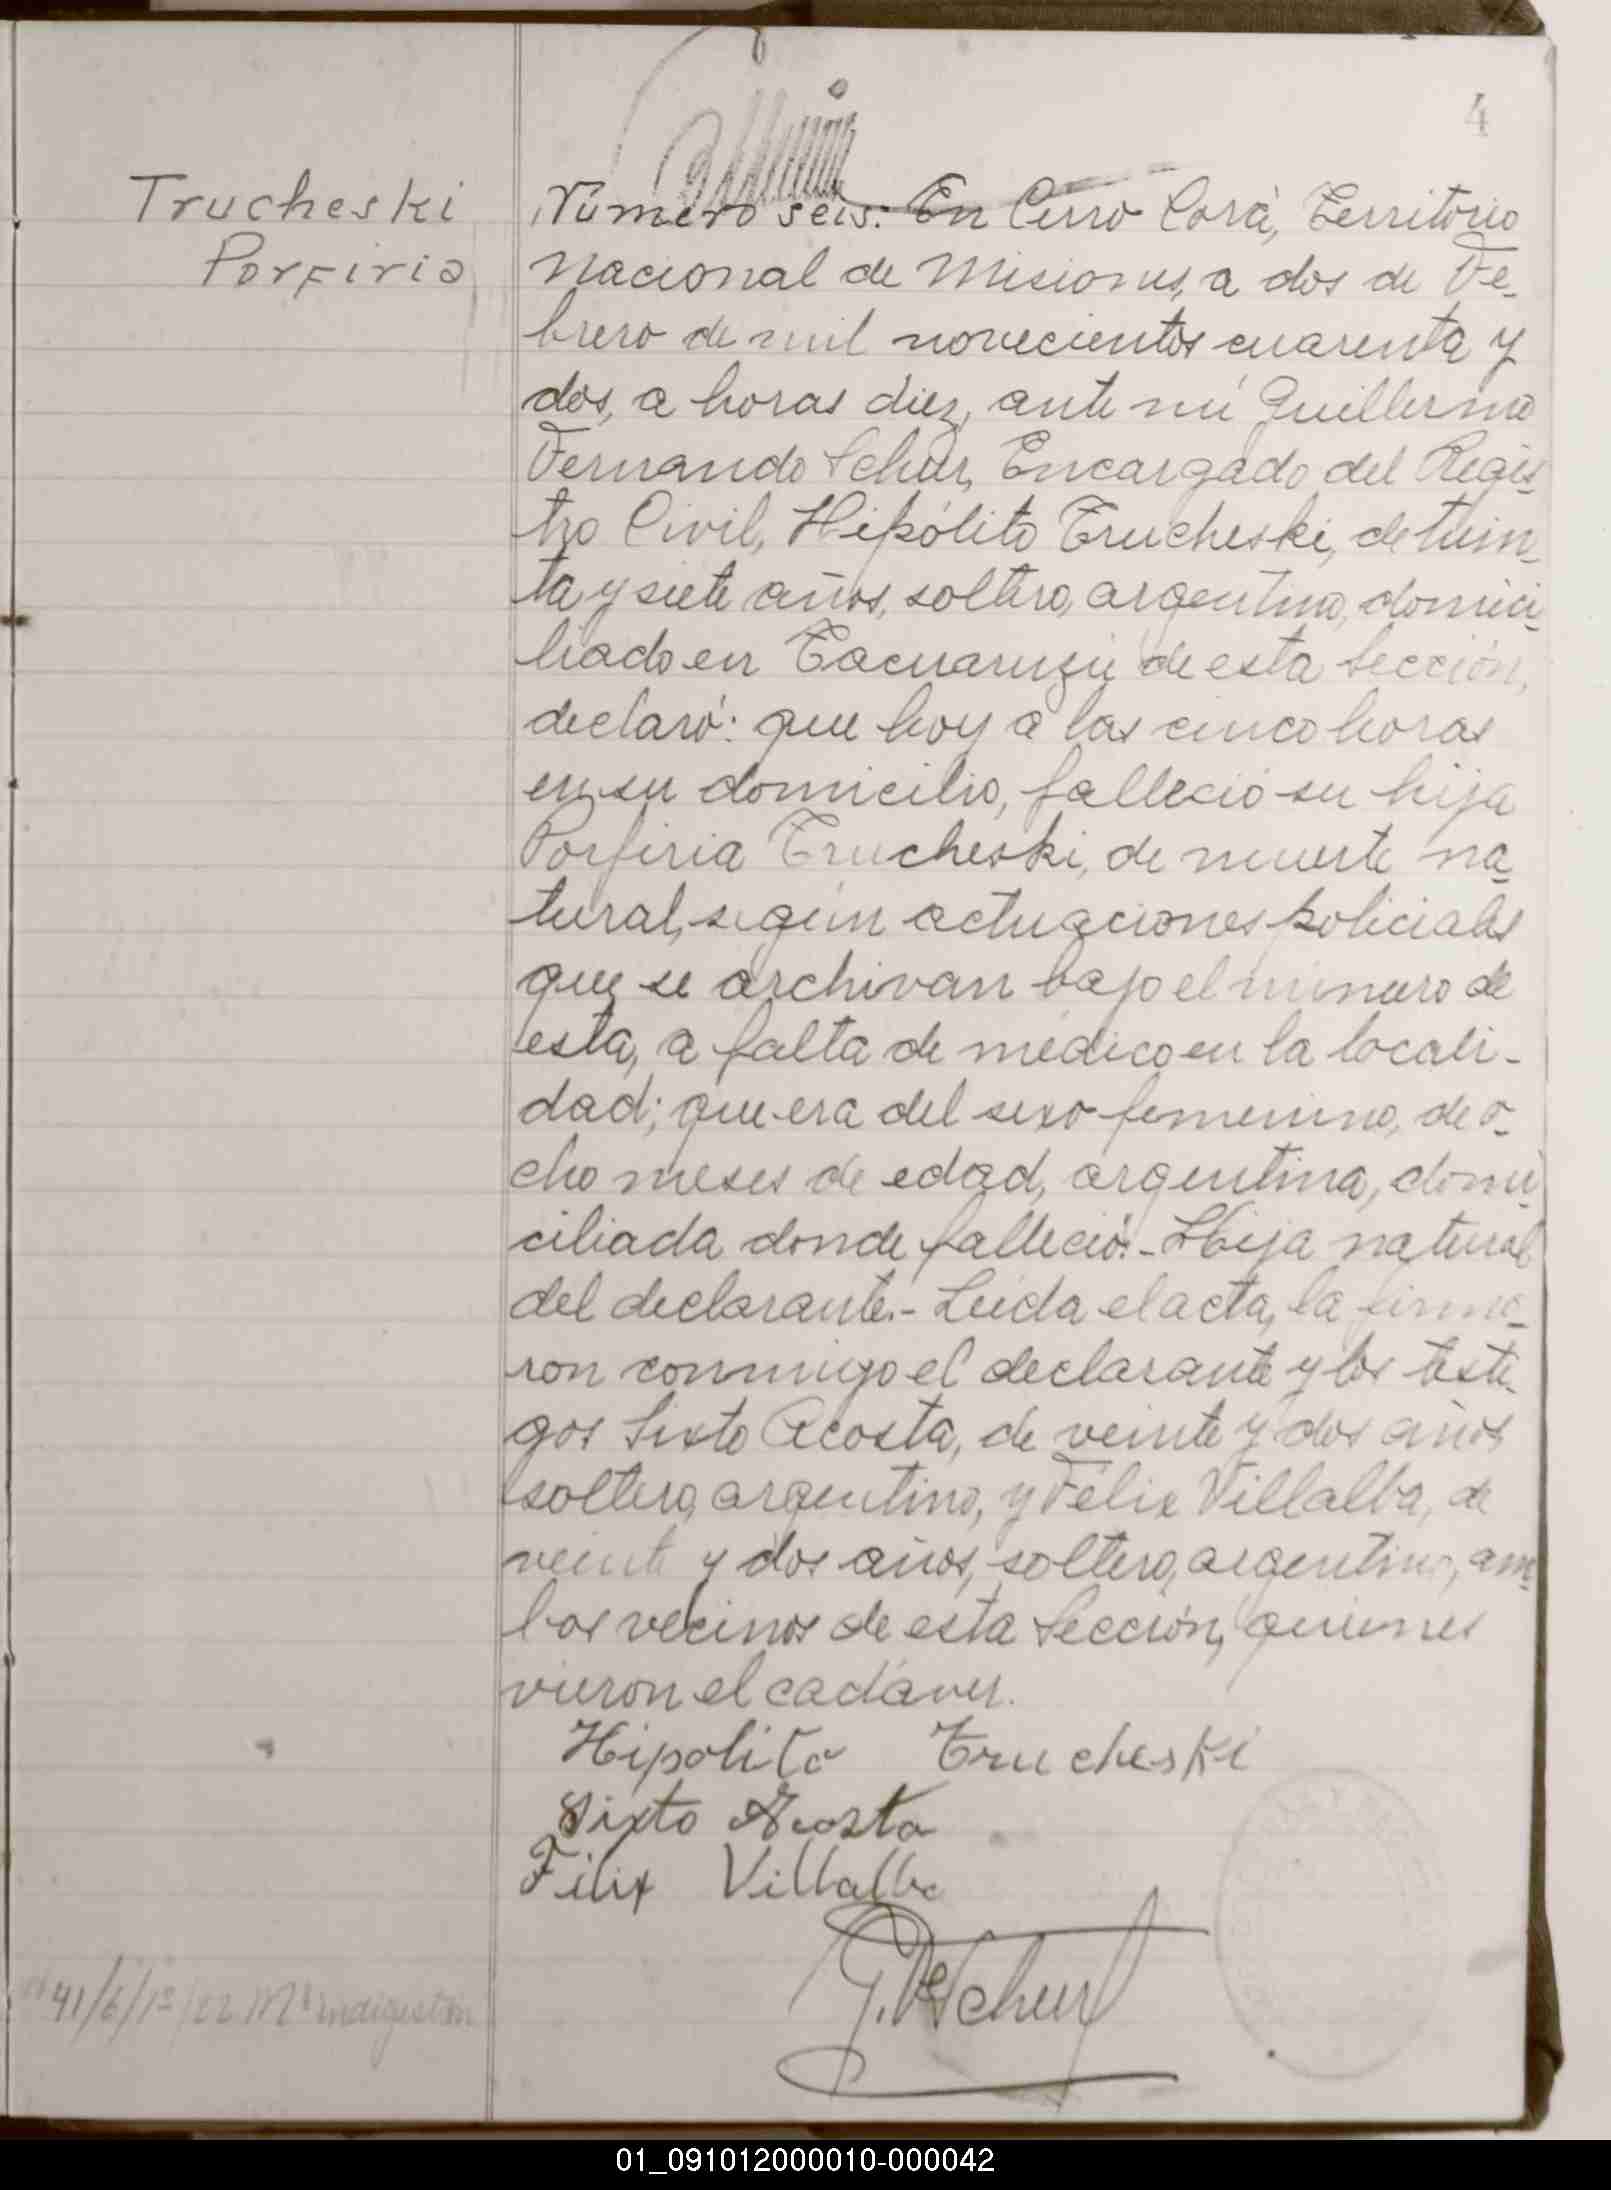 4
Trucheski
Porfiria
Número seis: En Cerro Corá, Territorio
Nacional de Misiones, a dos de Fe-
brero de mil novecientos cuarenta y
dos, a horas diez, ante mí Guillermo
Fernando Schur, Encargado del Regis-
tro Civil, Hipólito Trucheski, de trein-
ta y siete años, soltero, argentino, domici-
liado en Tacuaruzú de esta Sección,
declaró: que hoy a las cinco horas
en su domicilio, falleció su hija
Porfiria Trucheski, de muerte na-
tural, según actuaciones policiales
que se archivan bajo el número de
esta, a falta de médico en la locali-
dad; que era del sexo femenino, de o-
cho meses de edad, argentina, domi-
ciliada donde falleció.- Hija natural
del declarante.- Leída el acta, la firma-
ron conmigo el declarante y los testi-
gos Sixto Acosta, de veinte y dos años
soltero, argentino, y Félix Villalba, de
veinte y dos años, soltero, argentino, am-
bos vecinos de esta Sección, quienes
vieron el cadáver.
Hipolito Trucheski
Sixto Acosta
Felix Villalba
G. F. Schur
indigestión
01_091012000010-000042